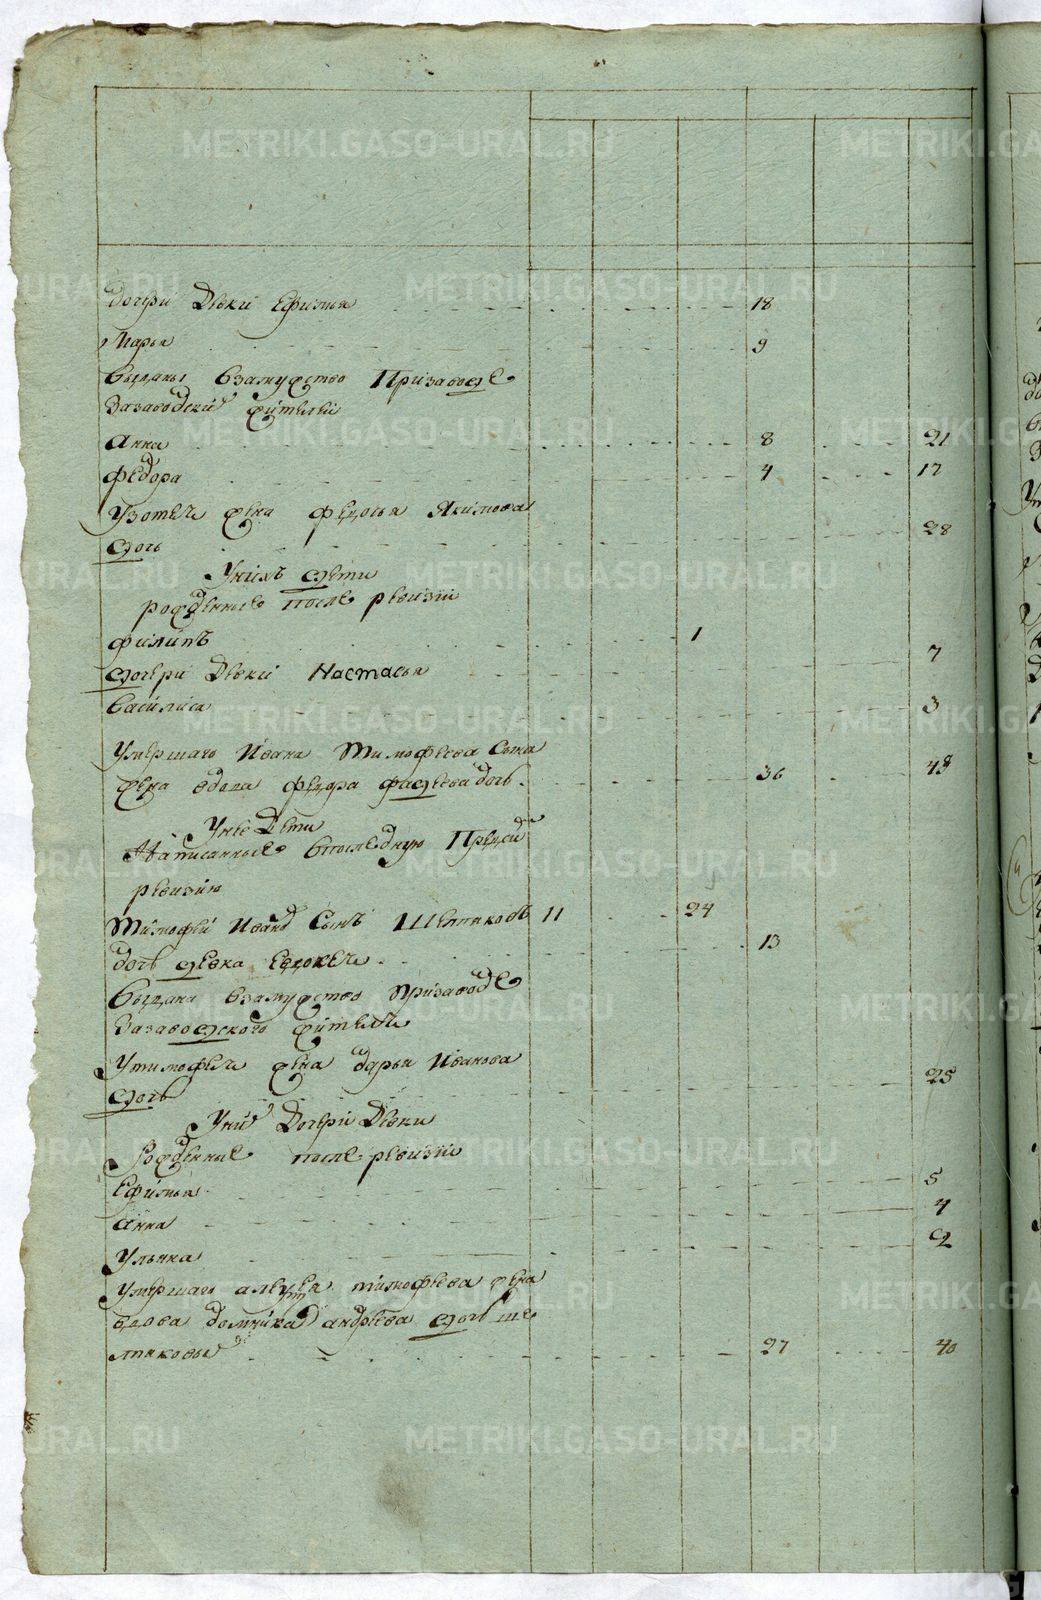 METRIKI.GASO-URAL.RU
дочери девки Ефимья 18
Марья 9
выданы взамужство Призаводе
Зазаводскиі жителей
Анна 8 21
Федора 4 17
Узотеи жена Федосья Якимова
дочь 28
Унихъ дети
рожденные после ревизіи
Филипъ 1
дочери девки Настасья 7
Василиса 3
Умершаго Ивана Тимофеева Сына
жена вдова Федора Фадеева дочь 36 48
Унее Дети
Написанные впоследную Пред
ревизию
Тимофей Иванов Сынъ Шелпаковъ 11 24
дочь девка Евдокея 13
Выдана взамужство призаводе
Зазаводского жителя
Утимофея жена дарья Иванова
дочь 25
Уних Дочери Девки
Рожденные после ревизіи
Ефимья 5
Анна 4
Ульяна 2
Умершаго алексея тимофеева жена
вдова домника андреева дочь ше
лпаковы 27 40